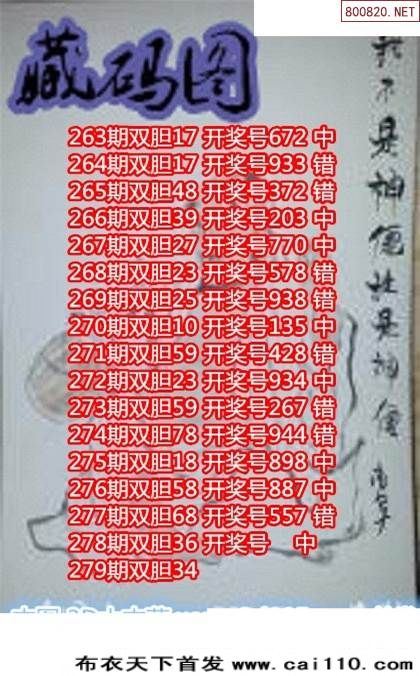 800820.NET
藏码图
263期双胆17 开奖号672 中
264期双胆17 开奖号933 错
265期双胆48 开奖号372 错
266期双胆39 开奖号203 中
267期双胆27 开奖号770 中
268期双胆23 开奖号578 错
269期双胆25 开奖号938 错
270期双胆10 开奖号135 中
271期双胆59 开奖号428 错
272期双胆23 开奖号934 中
273期双胆59 开奖号267 错
274期双胆78 开奖号944 错
275期双胆18 开奖号898 中
276期双胆58 开奖号887 中
277期双胆68 开奖号557 错
278期双胆36 开奖号 中
279期双胆34
不是神便是神
布衣天下首发 www.cai110.com